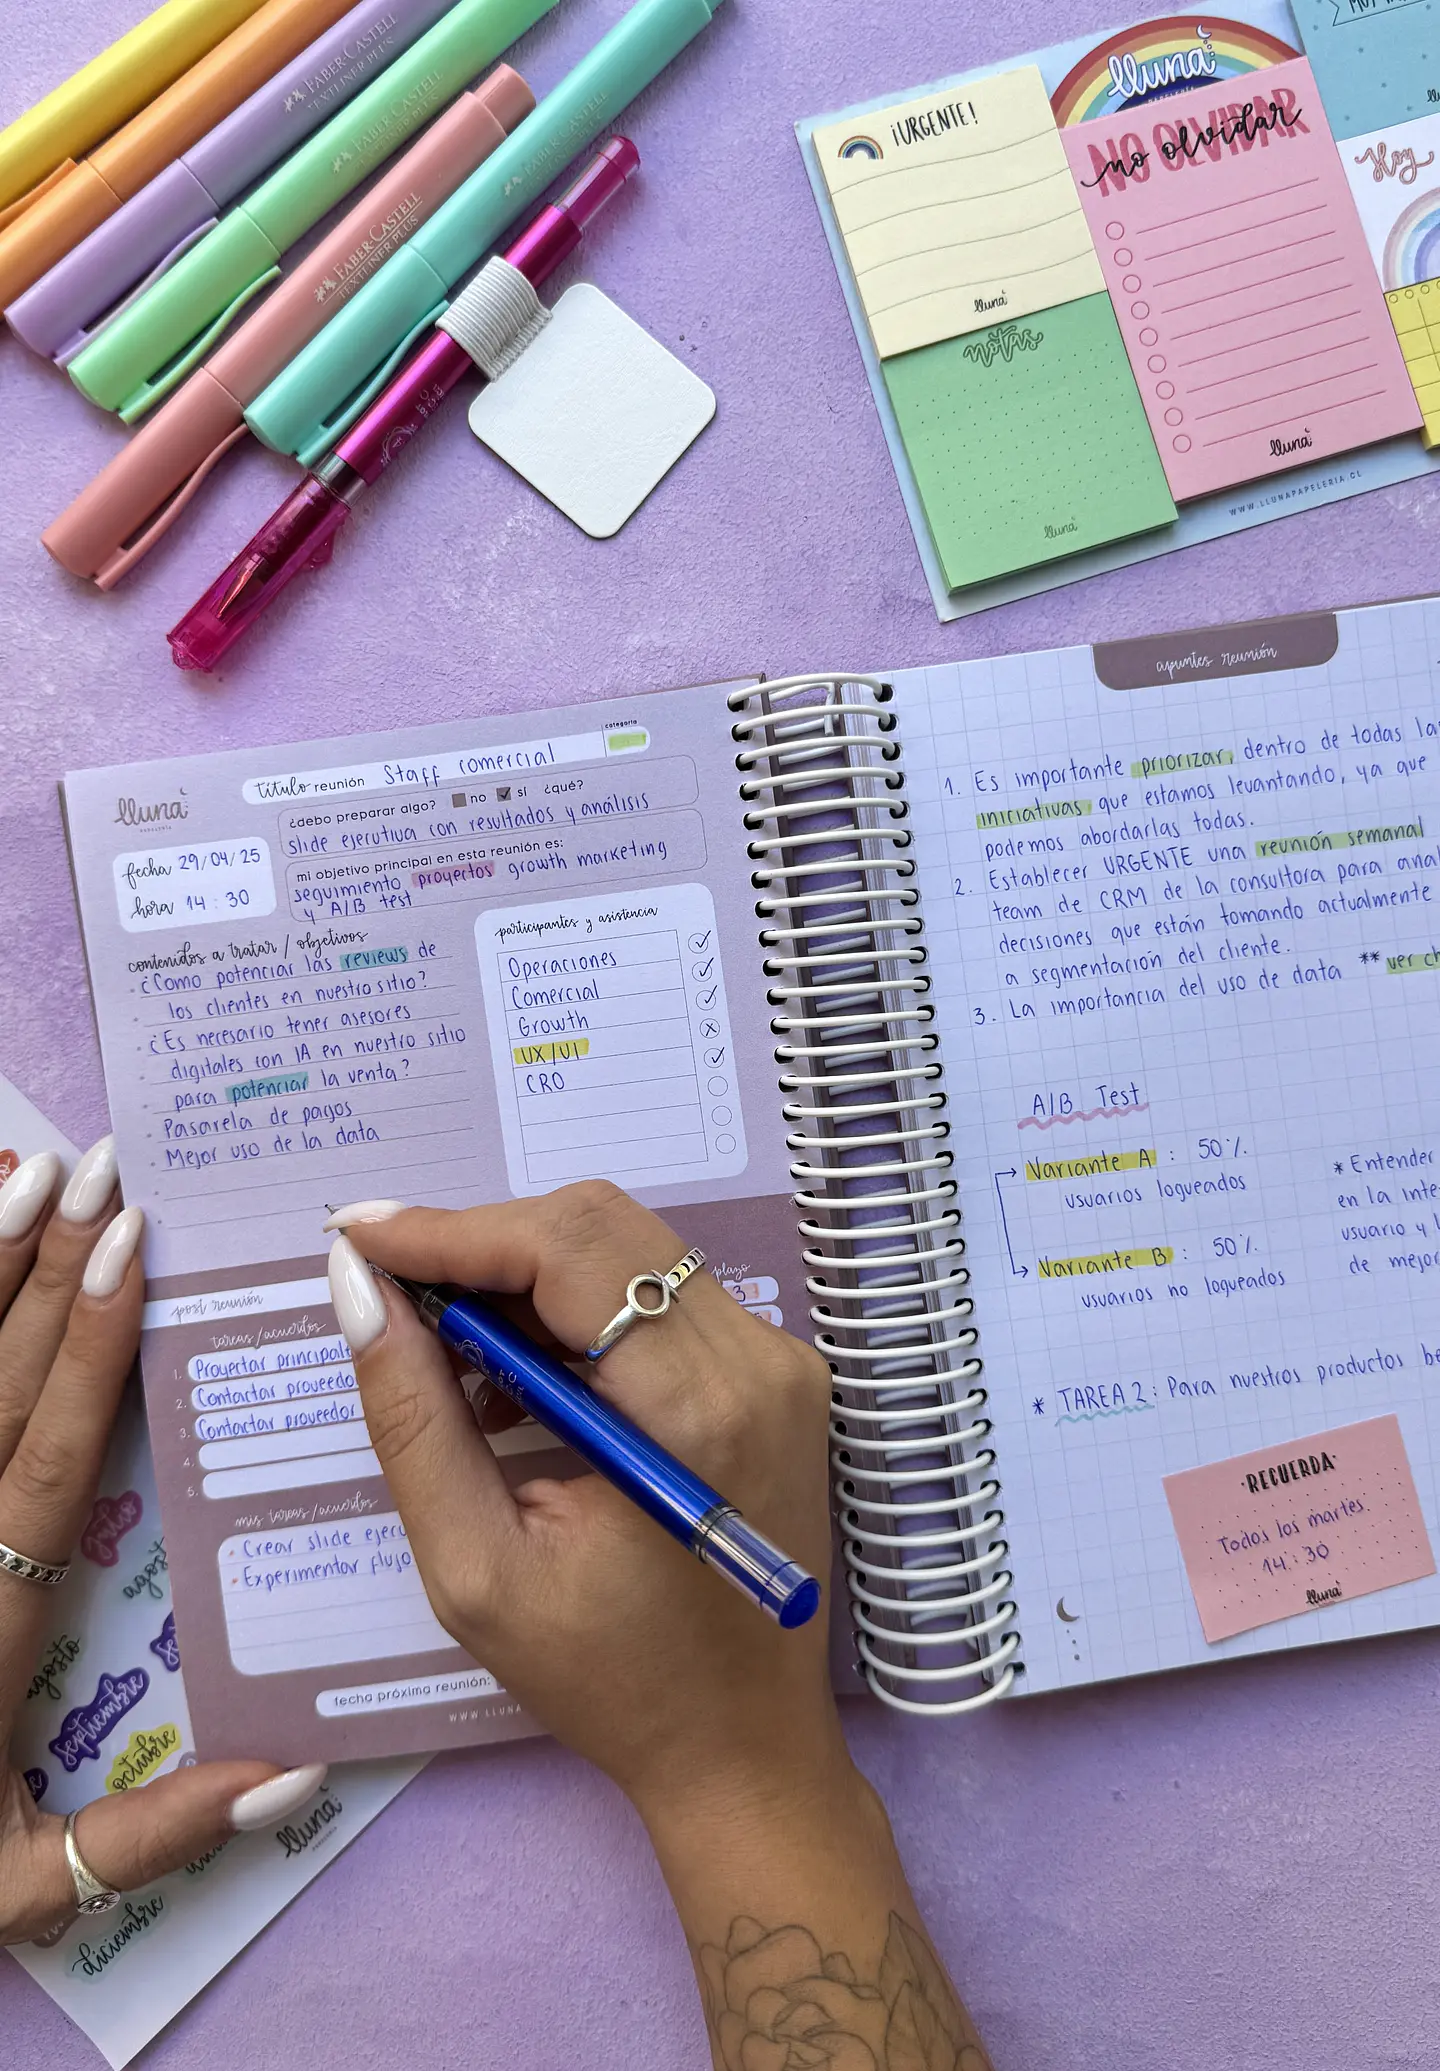 FABER-CASTELL
TEXTLINER PLUS
FABER-CASTELL
TEXTLINER PLUS
FABER-CASTELL
TEXTLINER PLUS
FABER-CASTELL
lluna
¡URGENTE!
lluna
NO OLVIDAR
no olvidar
lluna
notas
lluna
Hoy
WWW.LLUNAPAPELERIA.CL
lluna
PAPELERÍA
título reunión Staff comercial
categoría
¿debo preparar algo? no sí ¿qué?
slide ejecutiva con resultados y análisis
fecha 29/04/25
hora 14:30
mi objetivo principal en esta reunión es:
seguimiento proyectos growth marketing
y A/B test
contenidos a tratar / objetivos
¿Como potenciar las reviews de
los clientes en nuestro sitio?
¿Es necesario tener asesores
digitales con IA en nuestro sitio
para potenciar la venta?
Pasarela de pagos
Mejor uso de la data
participantes y asistencia
Operaciones
Comercial
Growth
UX/UI
CRO
post reunión
plazo
3
tareas/acuerdos
1. Proyectar principal
2. Contactar proveedo
3. Contactar proveedor
4.
5.
mis tareas/acuerdos
Crear slide ejecu
Experimentar flujo
fecha próxima reunión:
WWW.LLUN
apuntes reunión
1. Es importante priorizar, dentro de todas la
iniciativas que estamos levantando, ya que
podemos abordarlas todas.
2. Establecer URGENTE una reunión semanal
team de CRM de la consultora para anal
decisiones que están tomando actualmente
a segmentación del cliente.
3. La importancia del uso de data ** ver ch
A/B Test
Variante A : 50%
usuarios logueados
Variante B : 50%
usuarios no logueados
* Entender
en la inte
usuario y l
de mejor
* TAREA 2: Para nuestros productos be
·RECUERDA·
Todos los martes
14:30
lluna
julio
agosto
agosto
septiembre
octubre
diciembre
lluna
PAPELERÍA